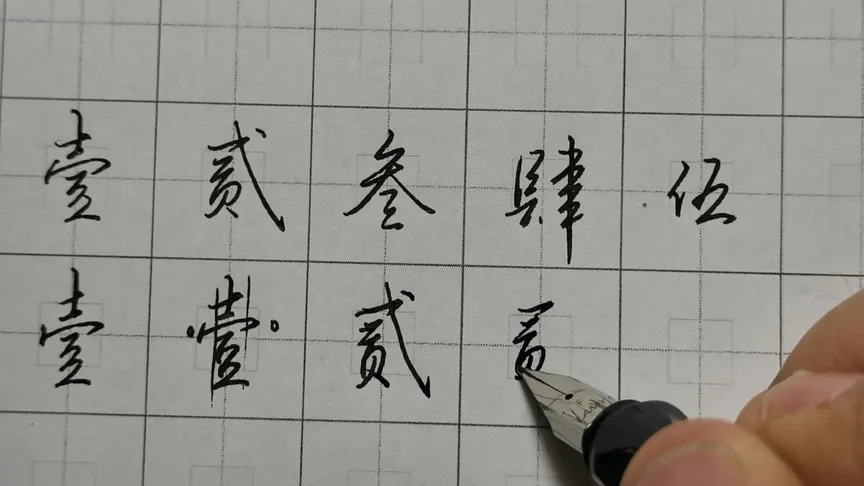 壹贰叁肆伍
壹壹贰